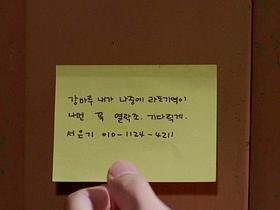 강마루 내가 나중에 라도기억이
나면 꼭 연락줘. 기다릴게.
서은기 010-1124-4211